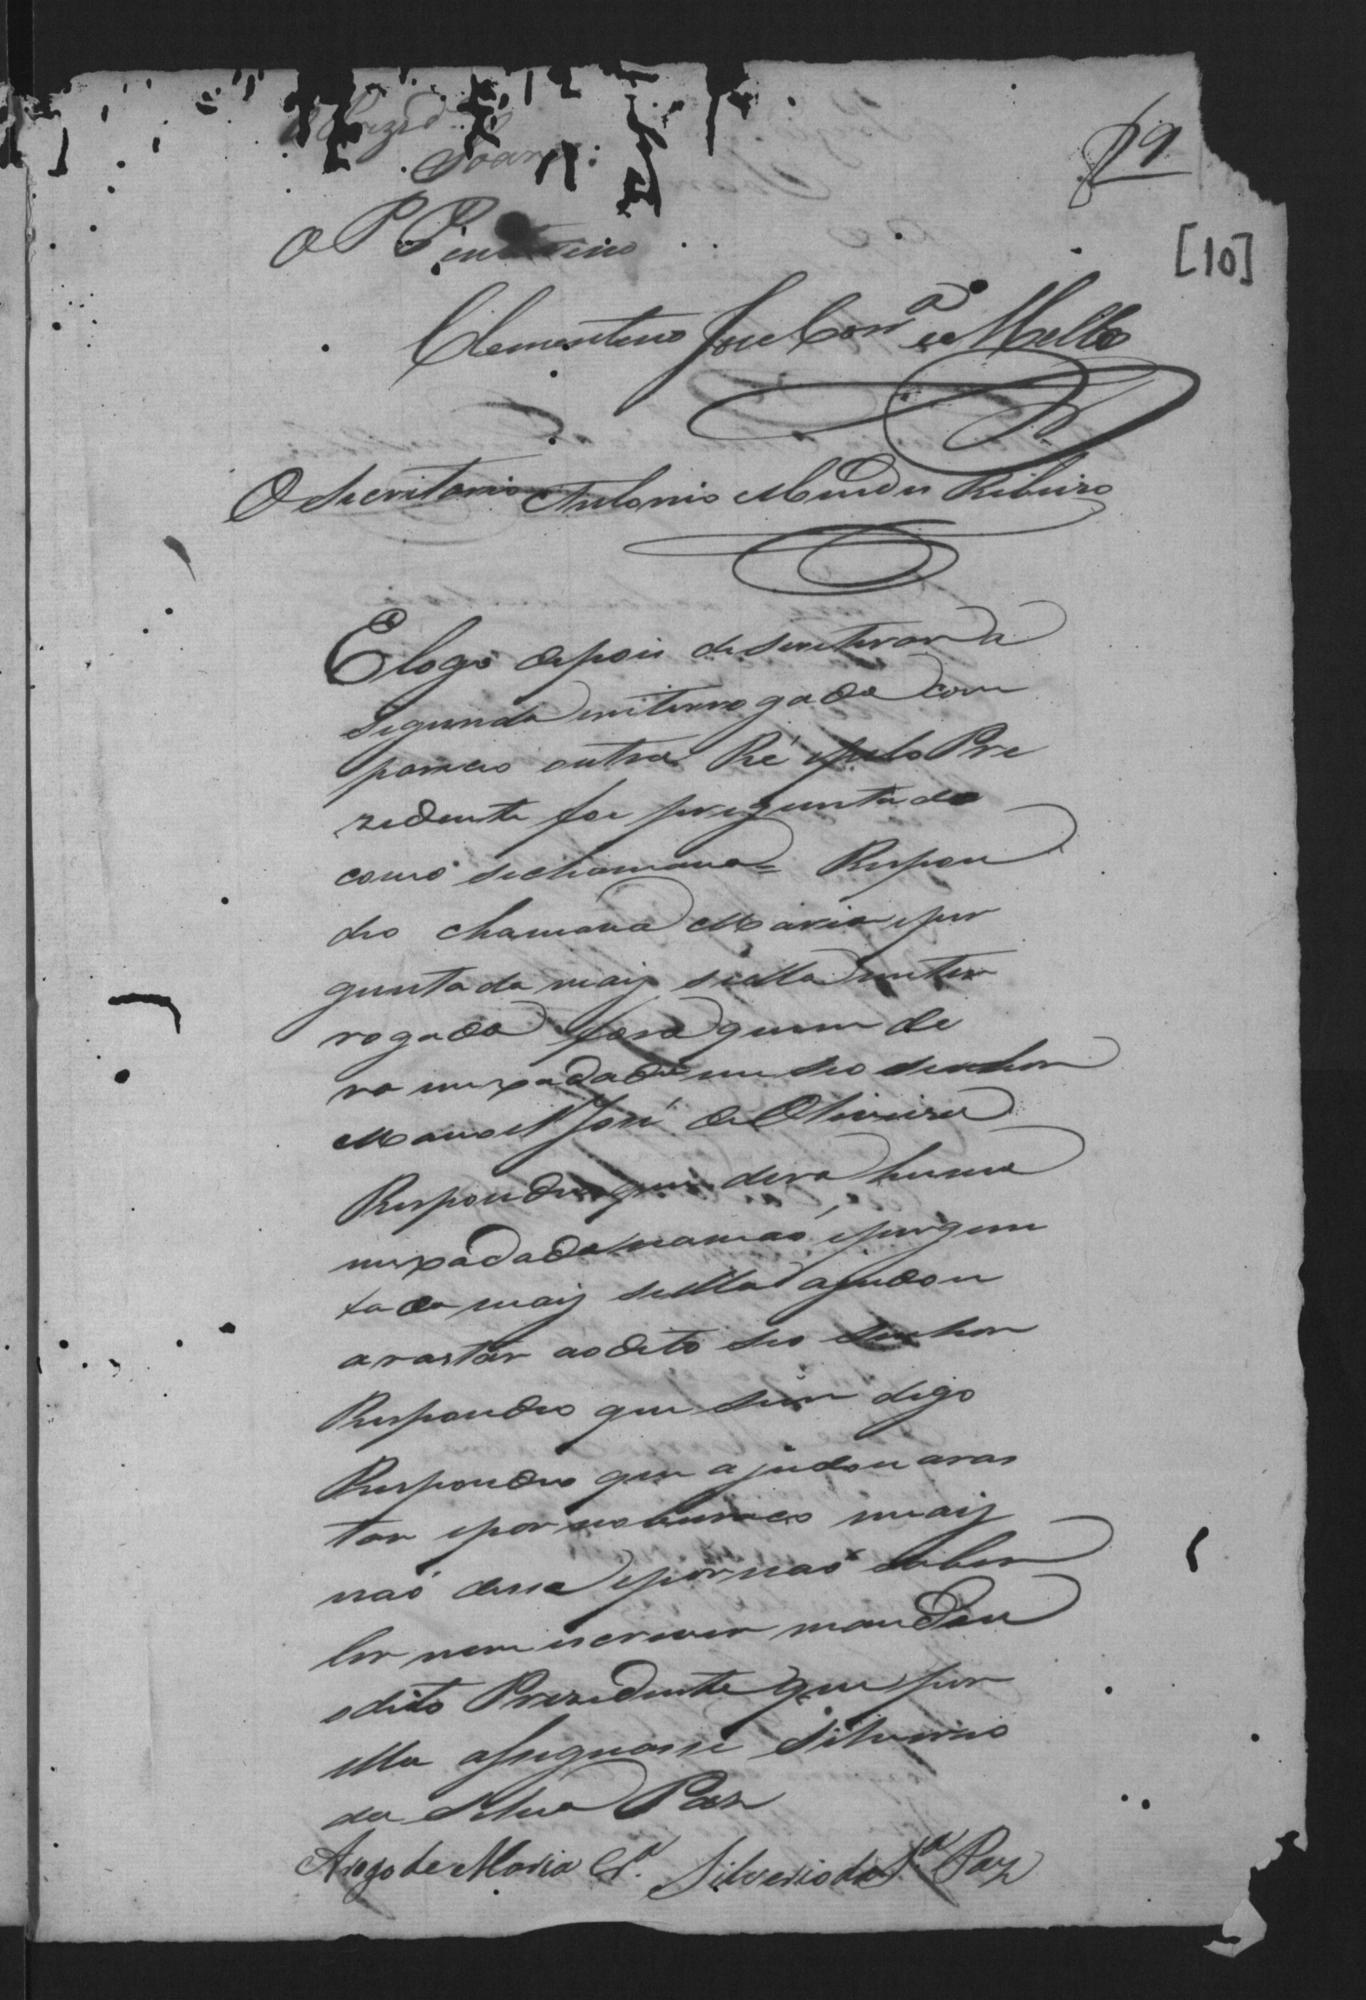 89
[10]
O P
Clementino Jose Corr.ª de Mello
O Secritario Antonio Mendes Ribeiro
E logo depois de se retirar a
segunda interrogada com
pareceo outra Ré e pelo Pre
zidente foi preguntado
como se chamava = Respon
deo chamava Maria e per
guntada mais se ella inter
rogada fora quem de
ra enxadada em seo senhor
Manoel José de Oliveira
Respondeo que dera huma
enxadada na mão, e pergun
tada mais se ella ajudou
arastar ao dito seo senhor
Respondeo que sim digo
Respondeo que ajudou aras
tar e por no buraco mais
naõ disse e por naõ saber
ler nem escrever mandou
o dito Prezidente que por
ella assignasse Silverio
da Silva Paz
Arogo de Maria Cr.ª Silverio da S.ª Paz